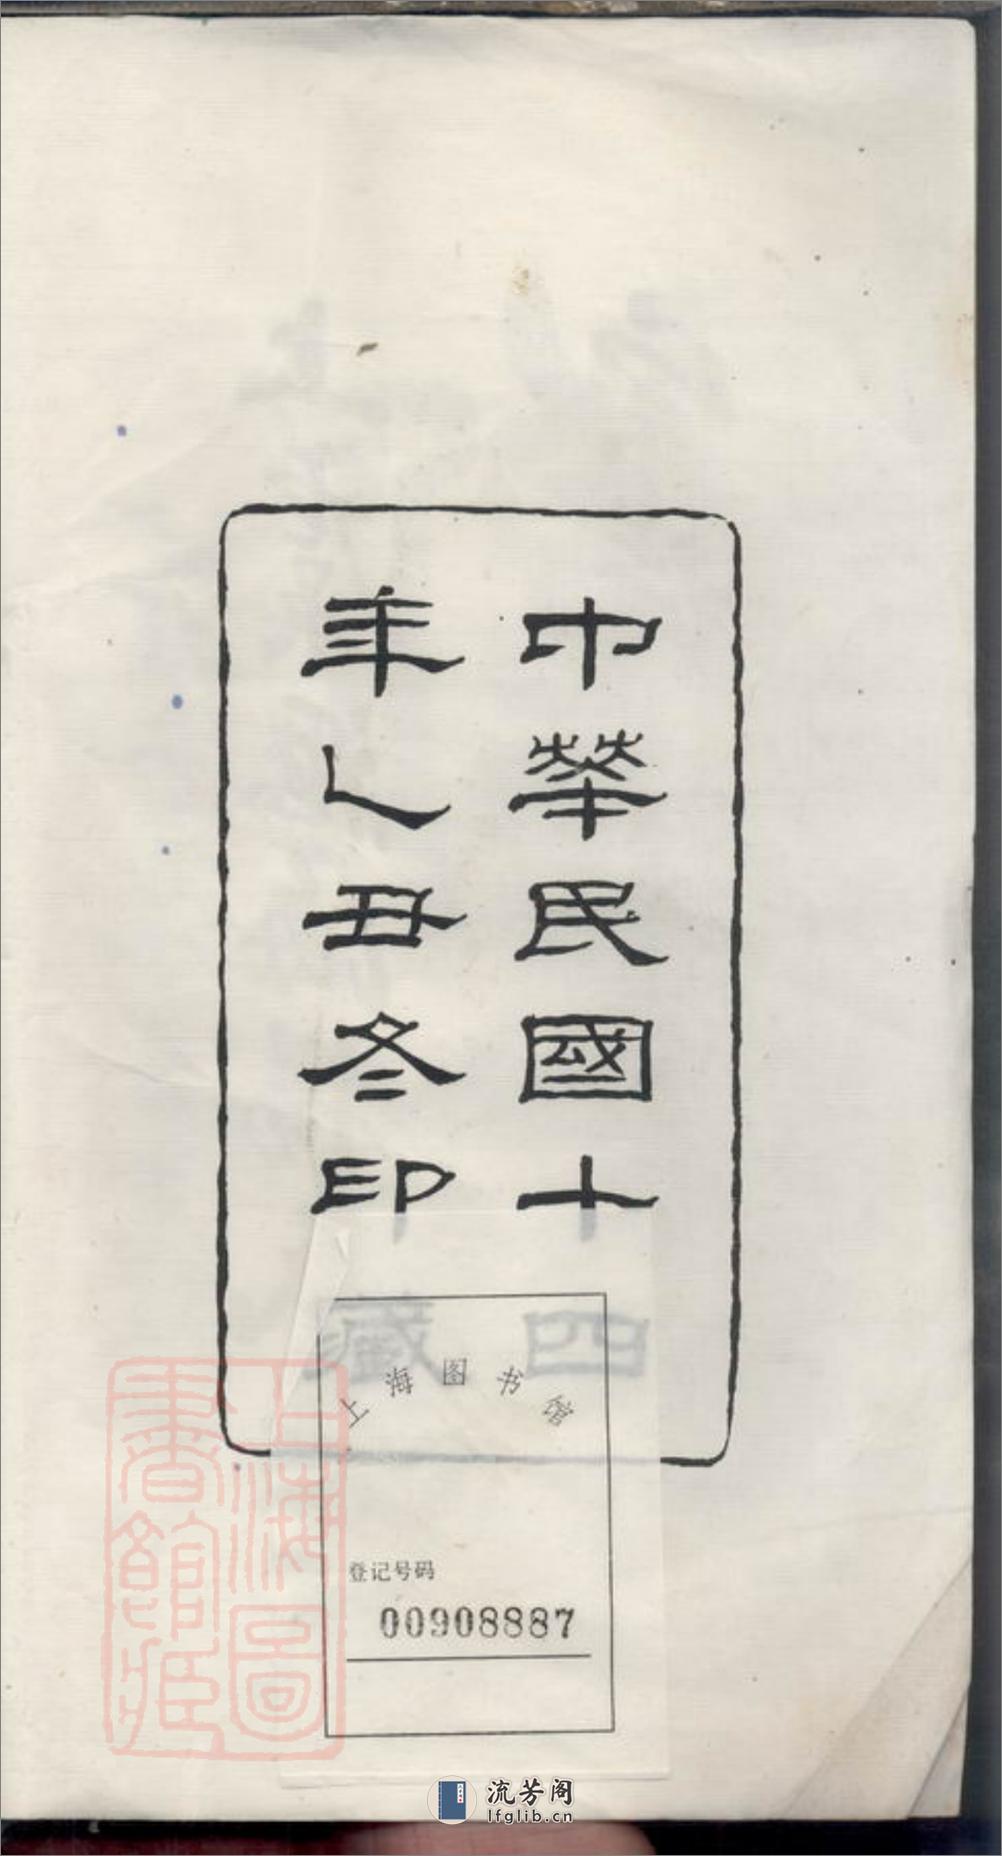 中華民國十四
年乙丑冬印藏
上海图书馆
登记号码
00908887
上海圖
書館藏
流芳阁
lfglib.cn